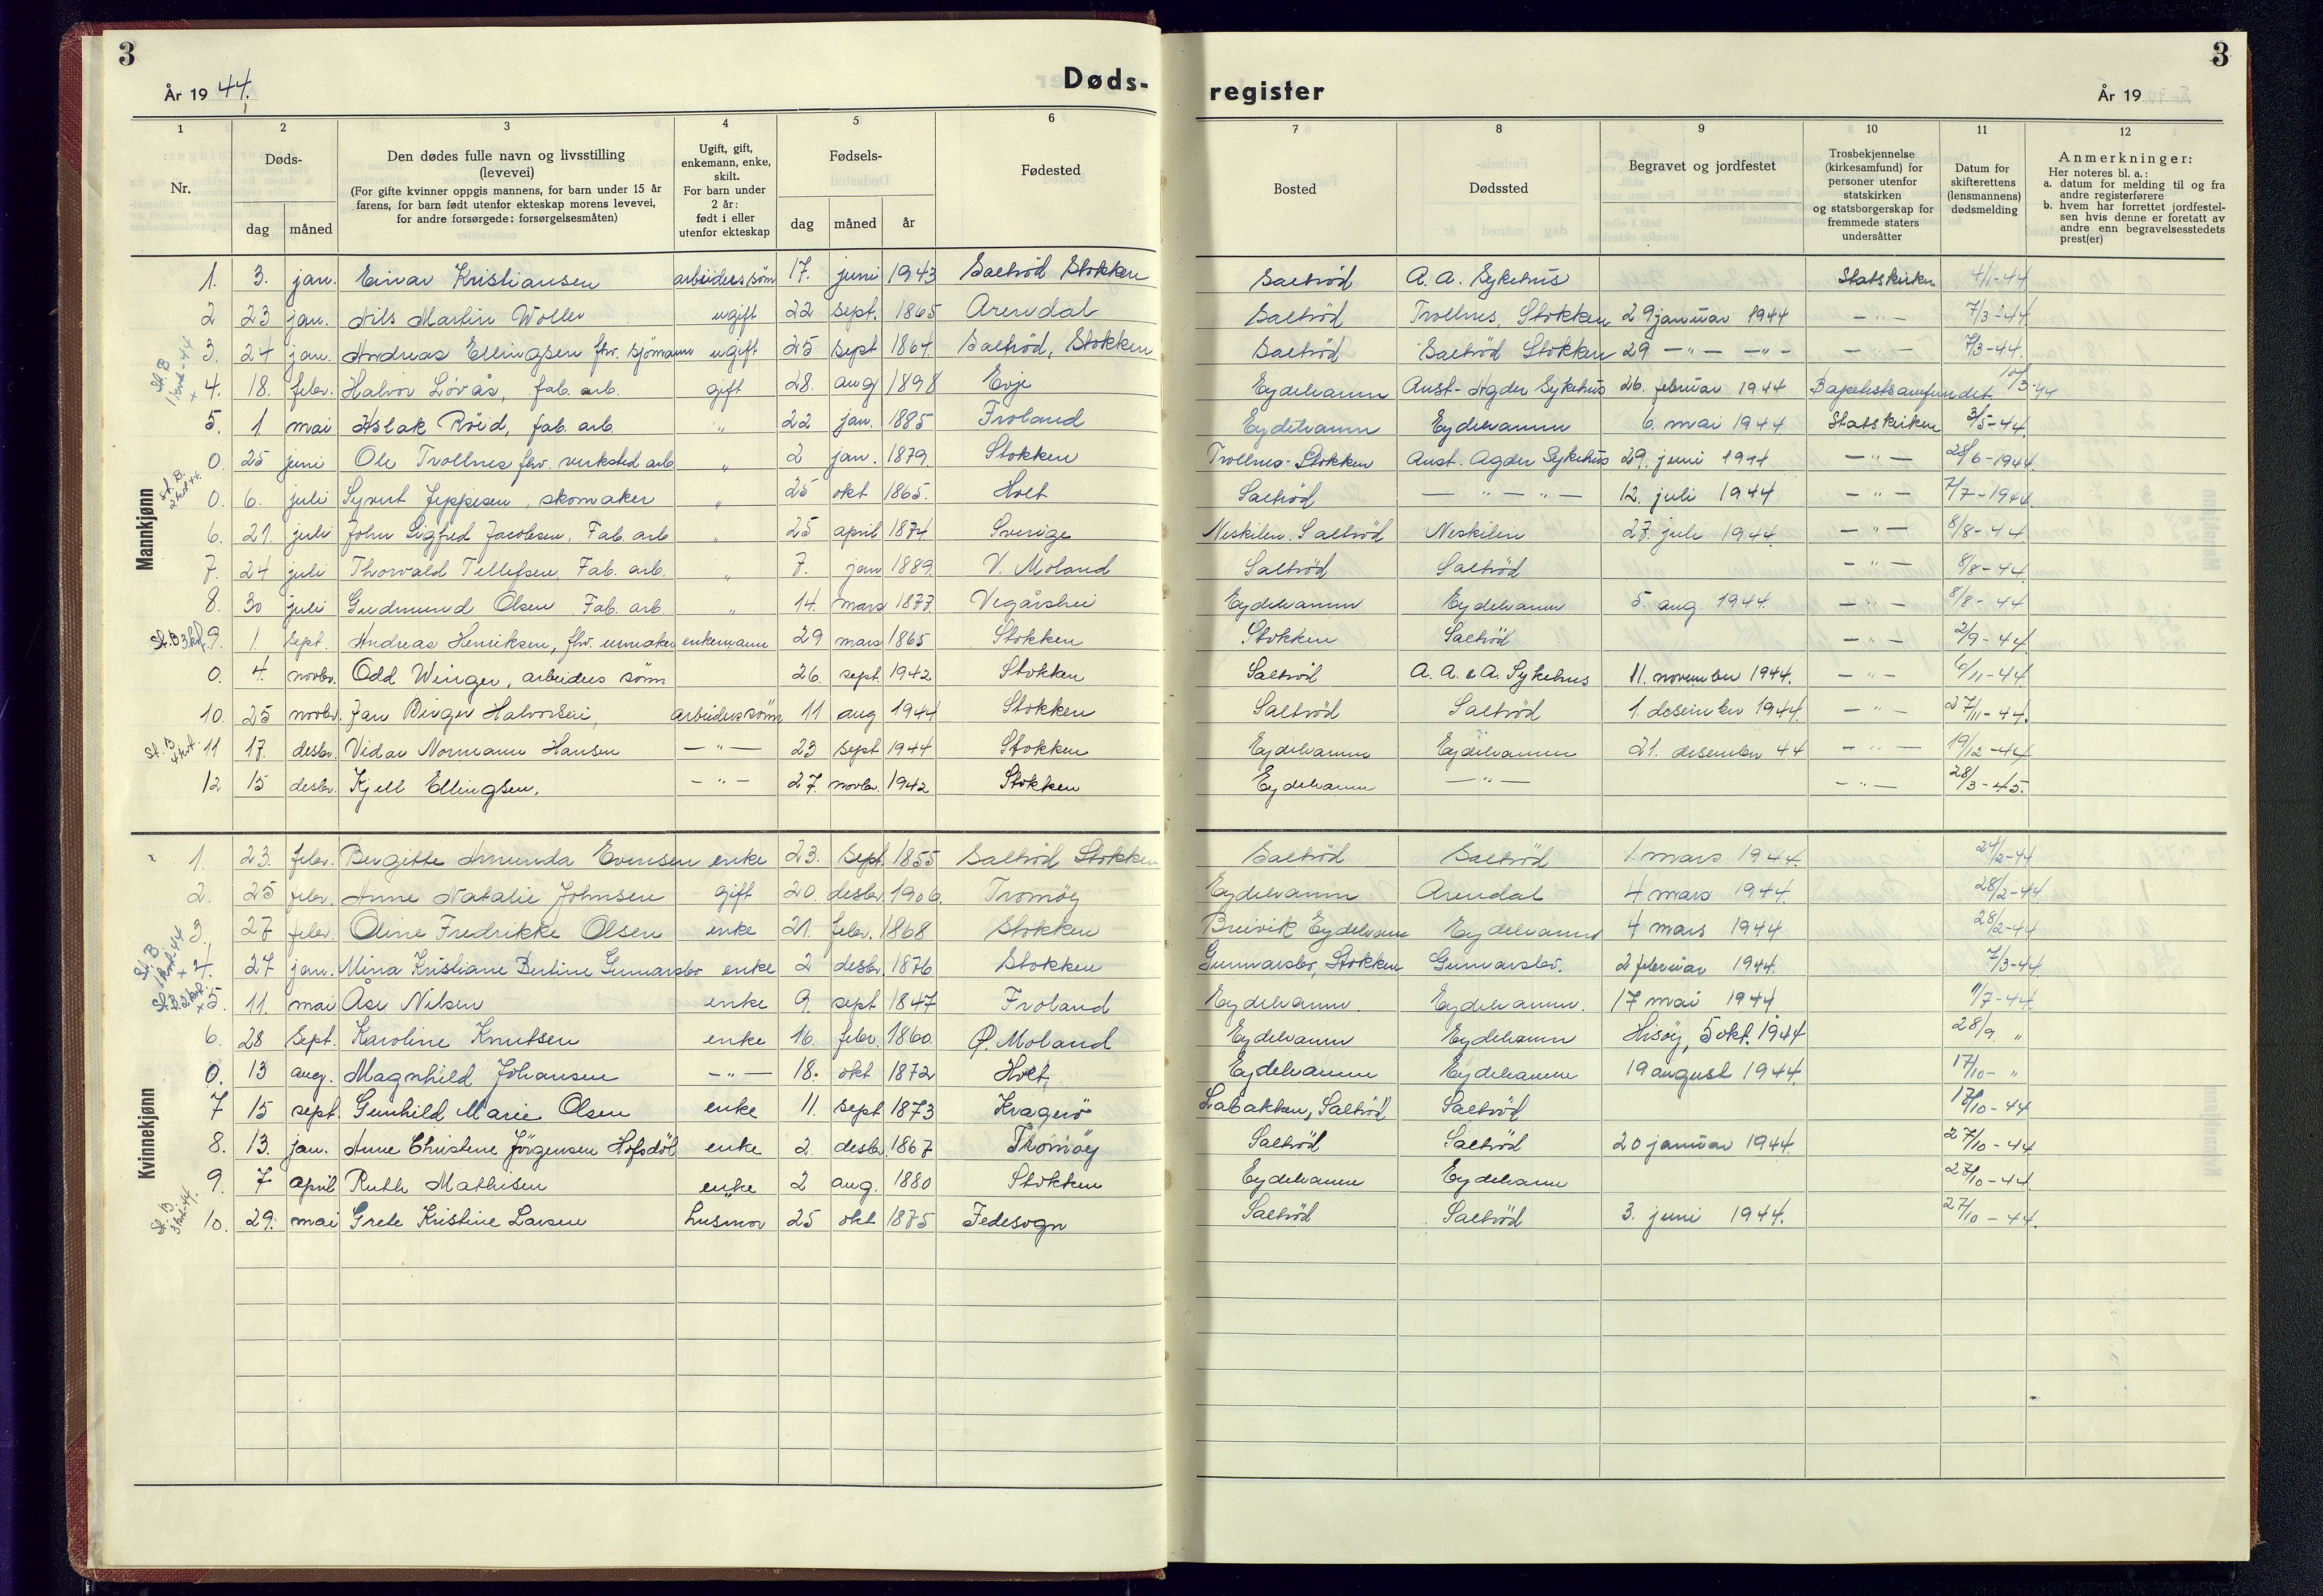 3
År 1944.
Døds-
1 2 3 4 5 6
Nr.
Døds-
dag måned
Den dødes fulle navn og livsstilling
(levevei)
(For gifte kvinner oppgis mannens, for barn under 15 år
farens, for barn født utenfor ekteskap morens levevei,
for andre forsørgede: forsørgelsesmåten)
Ugift, gift,
enkemann, enke,
skilt.
For barn under
2 år:
født i eller
utenfor ekteskap
Fødsels-
dag måned år
Fødested
Mannkjønn
1. 3. jan. Einar Kristiansen arbeiders sønn 17. juni 1943 Saltrød Stokken
2 23 jan. Nils Martin Woller ugift 22 sept. 1865 Arendal
3. 24 jan. Andreas Ellingsen fhv. sjømann ugift 25 sept 1864 Saltrød, Stokken
St. B
1 kvt-44
x 4. 18. febr. Halvor Løvås, fab. arb. gift 28. aug 1898 Evje
5. 1. mai Aslak Röid, fab. arb. " 22 jan. 1885 Froland
0. 25 juni Ole Trollnes fhv. verksted arb " 2 jan. 1879. Stokken
St. B.
2 kvt 44.
0. 6. juli Syvert Jeppesen, skomaker " 25 okt 1865. Holt
6. 21. juli John Sigfred Jacobsen, Fab. arb " 25 april 1874 Sverige
7. 24 juli Thorvald Tellefsen, Fab. arb. " 7. jan 1889. V. Moland
8. 30 juli Gudmund Olsen Fab. arb " 14. mars 1877. Vegårshei
St. B 3 kvt. 9. 1. sept. Andreas Henriksen, fhv. urmaker enkemann 29 mars 1865 Stokken
0. 4. novbr. Odd Winger, arbeiders sønn 26. sept. 1942 Stokken
10. 25 novbr. Jan Birger Halvorsen, arbeiders sønn 11 aug 1944 Stokken
St. B
4 kvt. 11 17. desbr. Vidar Normann Hansen — " — 23 sept 1944 Stokken
12 15 desbr. Kjell Ellingsen. — " — 27. novbr. 1942 Stokken
Kvinnekjønn
1. 23. febr. Bergitte Amunda Evensen enke 23. sept. 1855 Saltrød Stokken
2. 25 febr. Anne Natalie Johnsen gift 20. desbr. 1906. Tromøy
3. 27 febr. Oline Fredrikke Olsen enke 21. febr. 1868 Stokken
St. B
1 kvt-44
x 4. 27 jan. Mina Kristiane Bertine Gunnarsbo enke 2 desbr. 1876 Stokken
St. B. 2 kvt.
x 5. 11. mai Åse Nilsen enke 9. sept 1847 Froland
6. 28 sept. Karoline Knutsen enke 16. febr. 1860. Ø. Moland
0. 13 aug. Magnhild Johansen — " — 18. okt 1872 Holt
7 15 sept. Gunhild Marie Olsen enke 11. sept 1873 Kragerø
8. 13. jan. Anne Christene Jörgensen Hofsdøl enke 2. desbr. 1867 Tromøy
9. 7 april Ruth Mathisen enke 2 aug. 1880 Stokken
St. B
3 kvt-44.
10. 29. mai Grete Kristine Larsen husmor 25 okt 1875 Fedesogn
3
register
År 19
7 8 9 10 11 12
Bosted
Dødssted
Begravet og jordfestet
Trosbekjennelse
(kirkesamfund) for
personer utenfor
statskirken
og statsborgerskap for
fremmede staters
undersåtter
Datum for
skifterettens
(lensmannens)
dødsmelding
Anmerkninger:
Her noteres bl. a.:
a. datum for melding til og fra
andre registerførere
b. hvem har forrettet jordfestel-
sen hvis denne er foretatt av
andre enn begravelsesstedets
prest(er)
Saltrød A. A. Sykehus Statskirken 4/1-44
Saltrød Trollnes, Stokken 29 januar 1944 — " — 7/3-44
Saltrød Saltrød Stokken 29 — " — — " — — " — 7/3-44.
Eydehavnn Aust-Agder Sykehus 26. februar 1944 Baptistsamfundet 10/3-44
Eydehavnn Eydehavnn 6. mai 1944 Statskirken 3/5-44.
Trollnes-Stokken Aust. Agder Sykehus 29. juni 1944 — " — 28/6-1944.
Saltrød — " — " — 12. juli 1944 — " — 7/7-1944.
Neskilen. Saltrød Neskilen 27. juli 1944. — " — 8/8-44
Saltrød Saltrød — " — 8/8-44.
Eydehavnn Eydehavnn 5. aug 1944. — " — 8/8-44
Stokken Saltrød — " — 2/9-44.
Saltrød A. A. A. Sykehus 11. november 1944. — " — 6/11-44.
Saltrød Saltrød 1. desember 1944. — " — 27/11-44.
Eydehavnn Eydehavnn 21. desember 44 — " — 19/12-44
Eydehavnn — " — — " — 28/3-45.
Saltrød Saltrød 1. mars 1944. 24/2-44
Eydehavnn Arendal 4 mars 1944. 28/2-44.
Breivik Eydehavn Eydehavnn 4 mars 1944 28/2-44
Gunnarsbo, Stokken Gunnarsbo. 2 februar 1944. 7/3-44.
Eydehavnn. Eydehavnn. 17 mai 1944 1/7-44.
Eydehavnn Eydehavnn Hisøy, 5 okt. 1944 28/9 "
Eydehavnn Eydehavnn 19 august 1944. 17/10- "
Labakken, Saltrød Saltrød 17/10-44
Saltrød Saltrød 20 januar 1944. 27/10-44
Eydehavnn Eydehavn 27/10-44.
Saltrød Saltrød 3. juni 1944. 27/10-44.